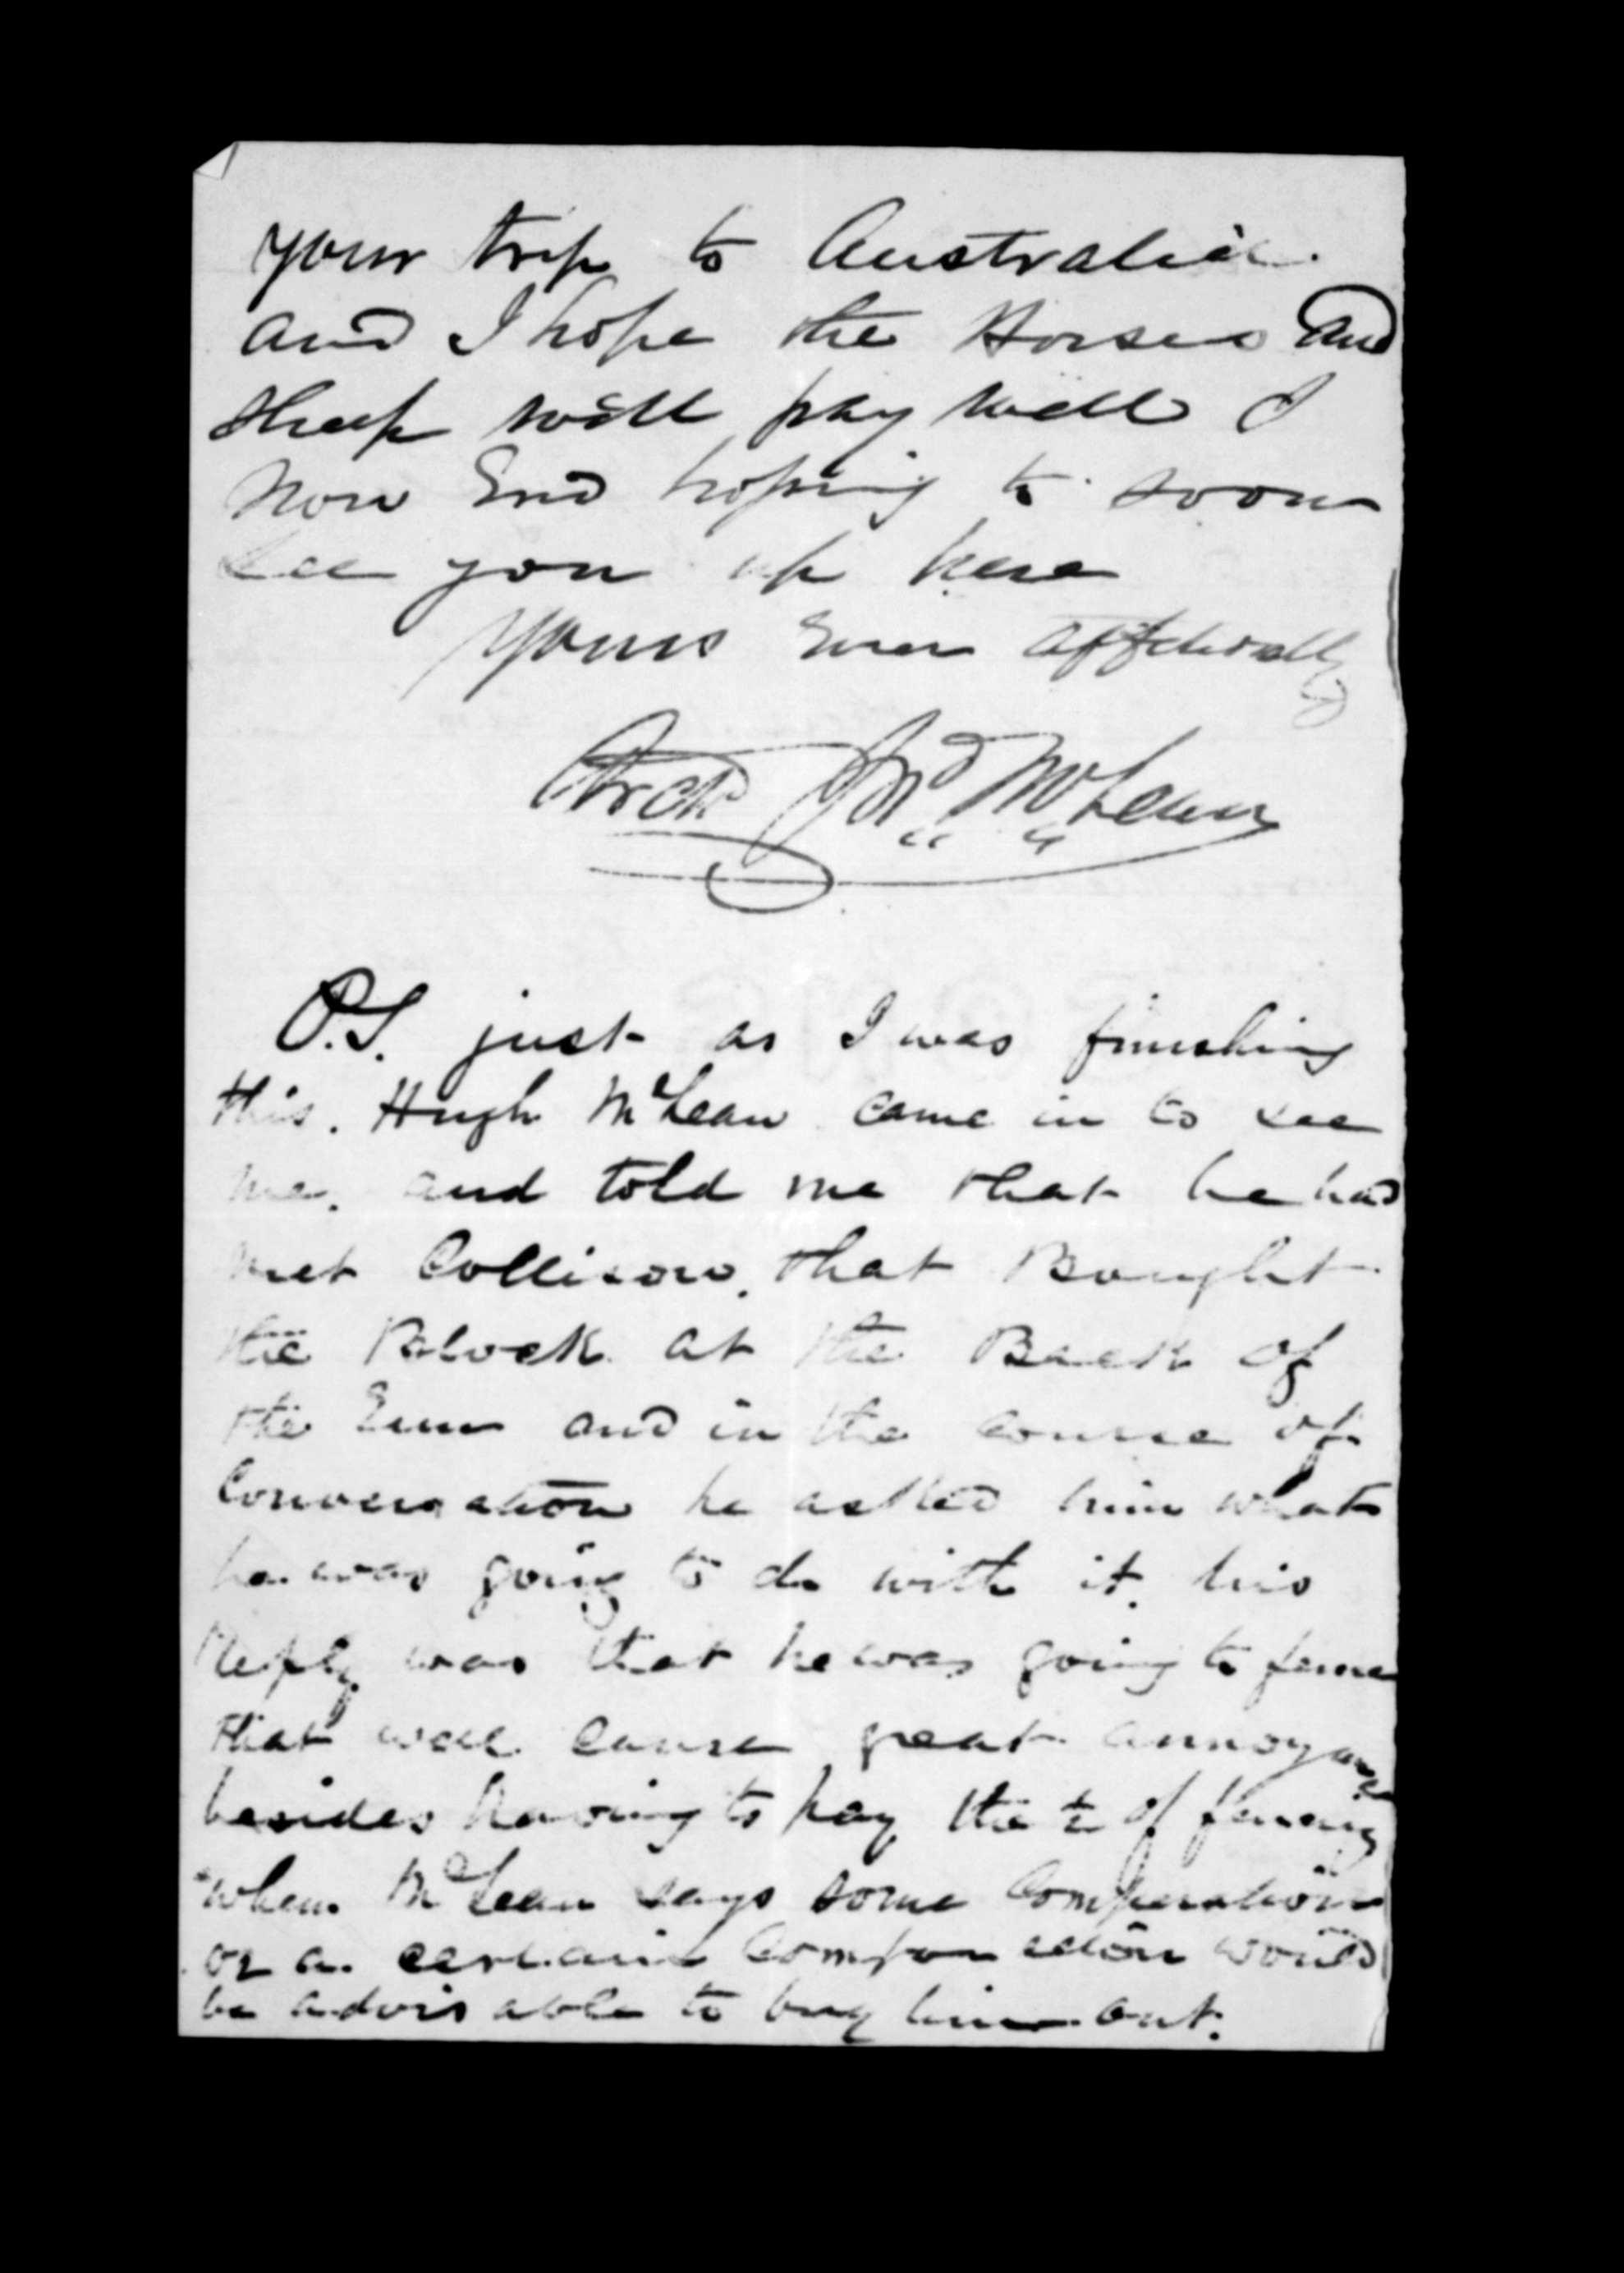 your trip to Australia.
and I hope the Horses and
sheep will pay well I
Now End hoping to soon
see you up here
Yours Ever
Archd Jno. McLean
P.S. just as I was finishing
this. Hugh McLean came in to see
me. and told me that he had
met Collison. that Bought
the Block at the Back of
the and in the course of
Conversation he asked him what
he was going to do with it. his
Reply was that he was going to fence
that will cause great annoyance
besides having to pay the ½ of fencing
when McLean says some
or a certain would
be advisable to buy him out.